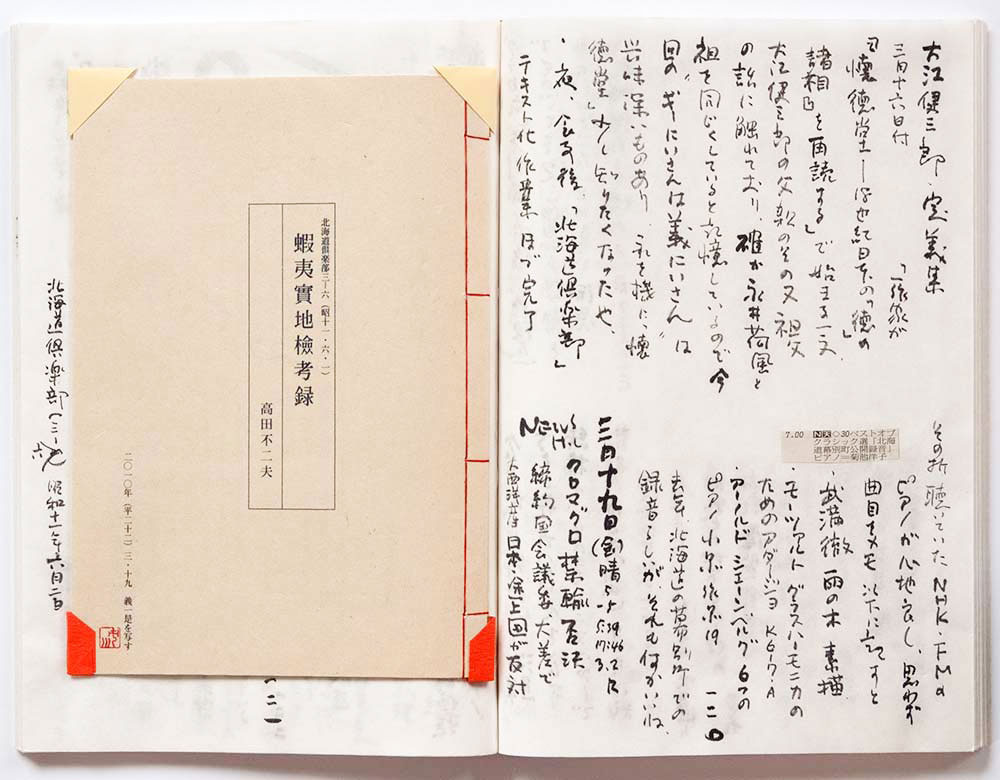 大江健三郎・定義集
三月十六日付 「張家が
『懐徳堂―18世紀日本の「徳」の
諸相』を再読する」で始まる一文
大江健三郎の父親のその又祖父
の話に触れており、確か永井荷風と
祖を同じくしていると記憶しているので今
回の“ギにいさんは義にいさん”は
興味深いものあり、これを機に「懐
徳堂」少し知りたくなったや
・夜、食事後、「北海道倶楽部」
テキスト化作業ほぼ完了
その折聴いていたNHK・FMの
ピアノが心地良し、思わず
曲目をメモ 以下に記すと
・武満徹 雨の木 素描
・モーツアルト グラスハーモニカの
ためのアダージョ K617A
・アーノルド シェーンベルク 6つの
ピアノ小品 作品19
去年、北海道の幕別町での
録音らしいが、それも何かいいね
7.00 N天◇30ベストオブ
クラシック選「北海
道幕別町公開録音」
ピアノ=菊池洋子
三月十九日(金)晴
NEWS
クロマグロ禁輸否決
締約国会議委、大差で
大西洋産 日本・途上国が反対
北海道倶楽部三―六(昭十一・六・一)
蝦夷實地檢考録
高田不二夫
二〇一〇年(平二十二)三・十九 義一是を写す
北海道倶楽部(三―六) 昭和十一年六月一日